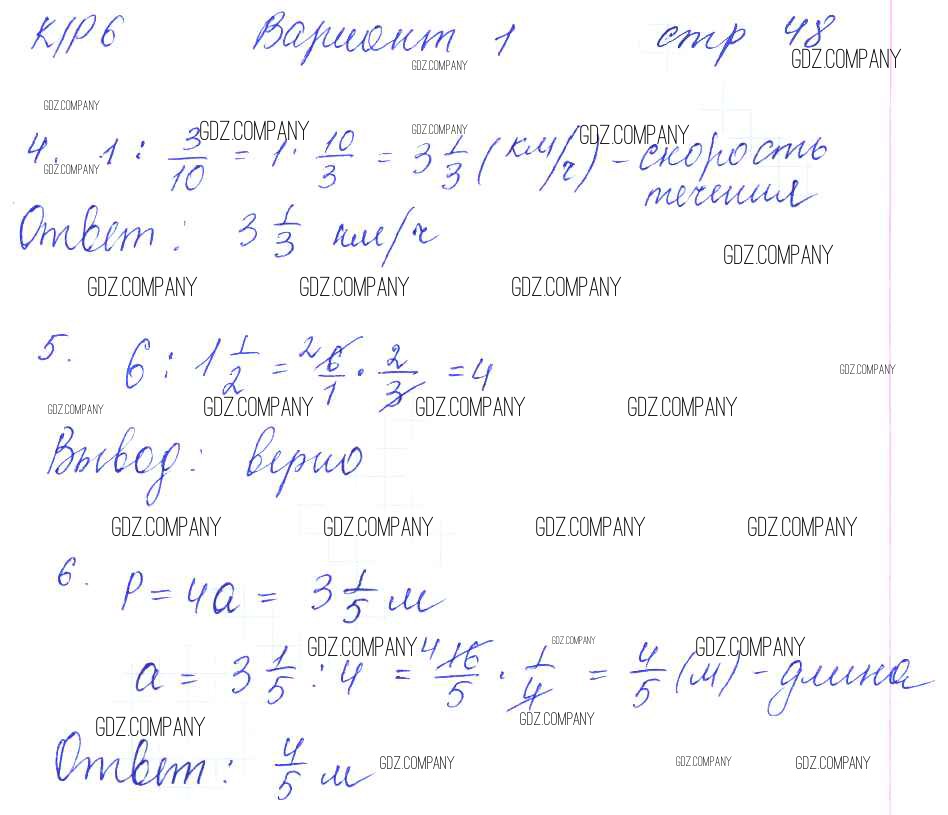 К/Р 6 Вариант 1 стр 48
GDZ.COMPANY GDZ.COMPANY
GDZ.COMPANY GDZ.COMPANY GDZ.COMPANY GDZ.COMPANY
4. 1 : 3/10 = 1 · 10/3 = 3 1/3 (км/ч) - скорость
GDZ.COMPANY
течения
Ответ: 3 1/3 км/ч
GDZ.COMPANY
GDZ.COMPANY GDZ.COMPANY GDZ.COMPANY
5. 6 : 1 1/2 = 2 6/1 · 2/3 = 4
GDZ.COMPANY
GDZ.COMPANY GDZ.COMPANY GDZ.COMPANY GDZ.COMPANY
Вывод: верно
GDZ.COMPANY GDZ.COMPANY GDZ.COMPANY GDZ.COMPANY
6. P = 4a = 3 1/5 м
GDZ.COMPANY GDZ.COMPANY GDZ.COMPANY
a = 3 1/5 : 4 = 4 16/5 · 1/4 = 4/5 (м) - длина
GDZ.COMPANY GDZ.COMPANY
Ответ: 4/5 м
GDZ.COMPANY GDZ.COMPANY GDZ.COMPANY